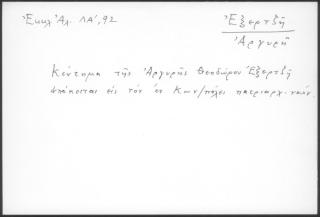 Ἐκκλ Ἀλ. ΛΑ΄, 92
Ἐξερτζῆ
Ἀργυρῆ
Κέντημα τῆς Ἀργυρῆς Θεοδώρου Ἐξερτζῆ
ἀπόκειται εἰς τὸν ἐν Κων/πόλει πατριαρχ. ναόν